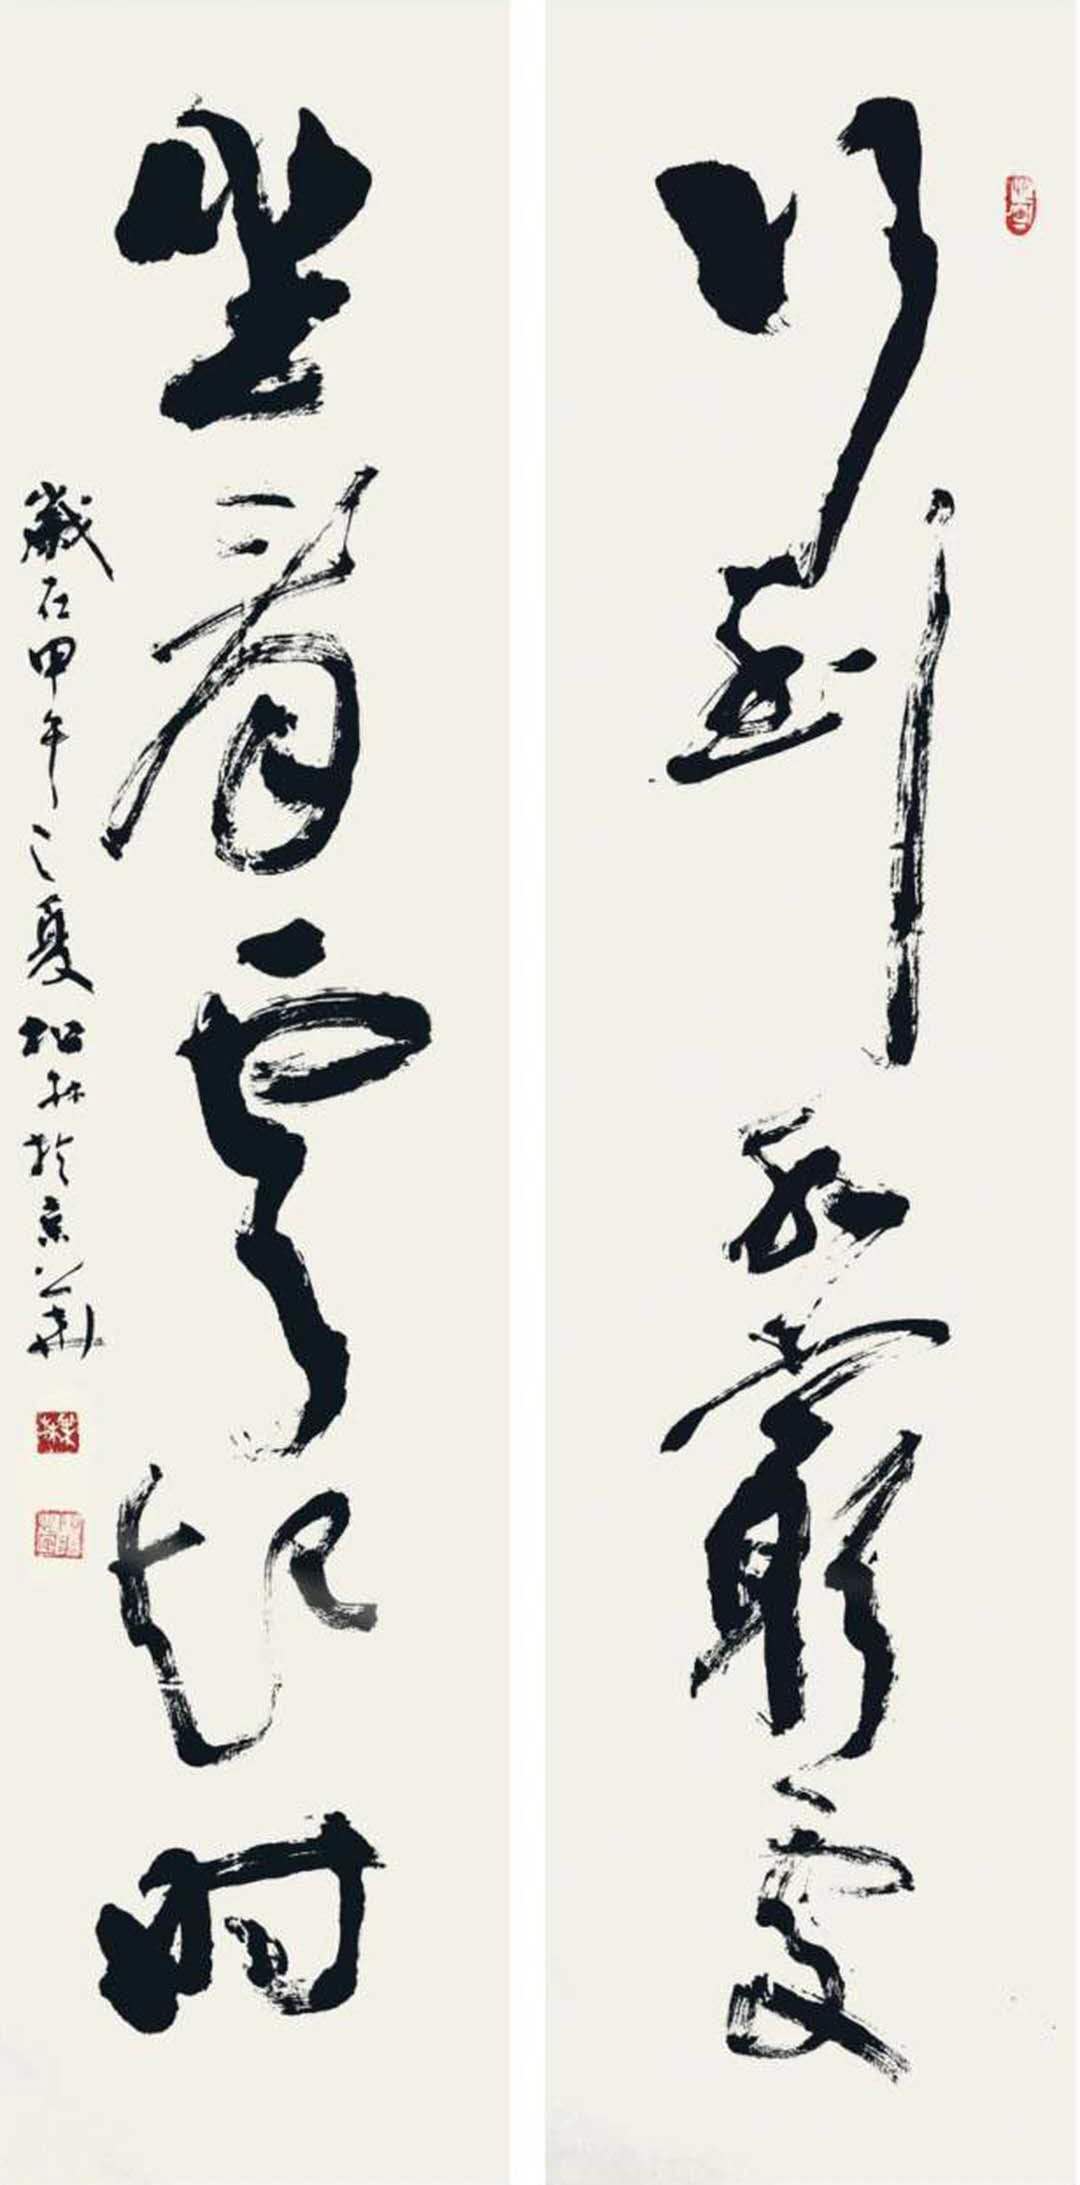 行到水窮處
坐看雲起時
歲在甲午之夏松林於京華